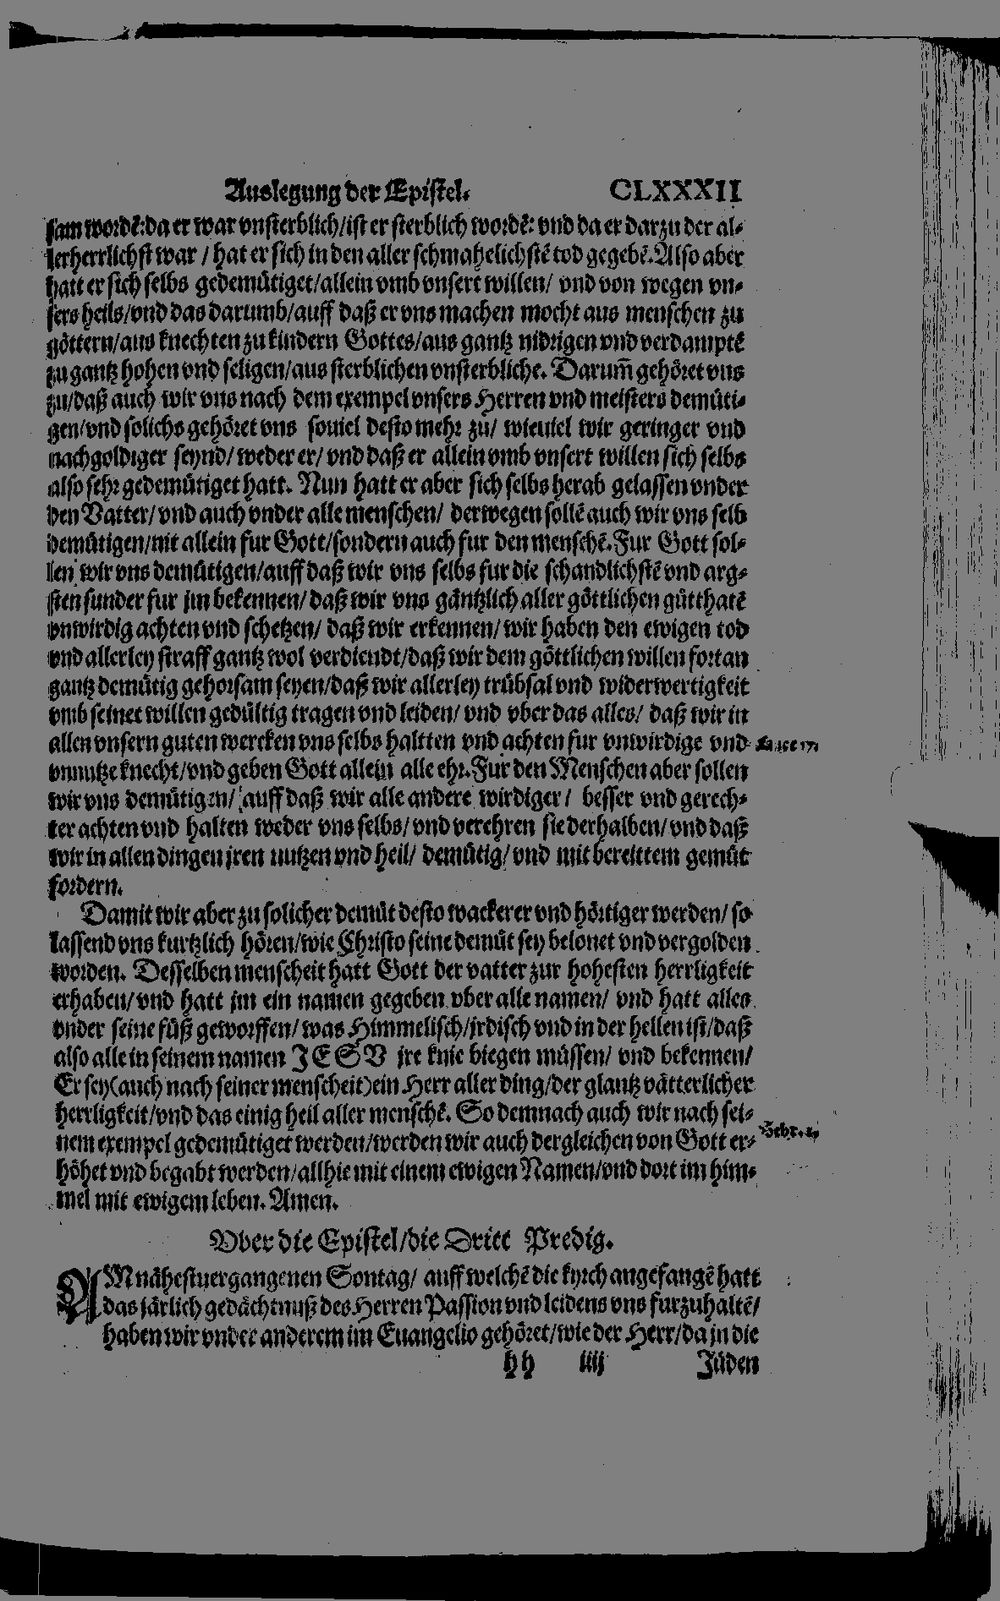 Auslegung der Epistel. CLXXXII
sam wordē: da er war vnsterblich/ ist er sterblich wordē: vnd da er darzu der al-
lerherrlichst war / hat er sich in den aller schmahelichstē tod gegebē. Also aber
hatt er sich selbs gedemütiget/ allein vmb vnsert willen/ vnd von wegen vn-
sers heils/ vnd das darumb/ auff daß er vns machen mocht aus menschen zu
göttern/ aus knechten zu kindern Gottes/ aus gantz nidrigen vnd verdamptē
zu gantz hohen vnd seligen/ aus sterblichen vnsterbliche. Darum̄ gehöret vns
zu/ daß auch wir vns nach dem exempel vnsers Herren vnd meisters demüti-
gen/ vnd solichs gehöret vns souiel desto mehr zu/ wieuiel wir geringer vnd
nachgoldiger seynd/ weder er/ vnd daß er allein vmb vnsert willen sich selbs
also sehr gedemütiget hatt. Nun hatt er aber sich selbs herab gelassen vnder
den Vatter/ vnd auch vnder alle menschen/ derwegen sollē auch wir vns selb
demütigen/ nit allein fur Gott/ sondern auch fur den menschē. Fur Gott sol-
len wir vns demütigen/ auff daß wir vns selbs fur die schandlichstē vnd arg-
sten sunder fur jm bekennen/ daß wir vns gäntzlich aller göttlichen gütthatē
vnwirdig achten vnd schetzen/ daß wir erkennen/ wir haben den ewigen tod
vnd allerley straff gantz wol verdiendt/ daß wir dem göttlichen willen fortan
gantz demütig gehorsam seyen/ daß wir allerley trübsal vnd widerwertigkeit
vmb seinet willen gedültig tragen vnd leiden/ vnd vber das alles/ daß wir in
allen vnsern guten wercken vns selbs haltten vnd achten fur vnwirdige vnd
Luce 17.
vnnutze knecht/ vnd geben Gott allein alle ehr. Fur den Menschen aber sollen
wir vns demütigen/ auff daß wir alle andere wirdiger / besser vnd gerech-
ter achten vnd halten weder vns selbs/ vnd verehren sie derhalben/ vnd daß
wir in allen dingen jren nutzen vnd heil/ demütig/ vnd mit bereittem gemüt
fordern.
Damit wir aber zu solicher demüt desto wackerer vnd hörtiger werden/ so
lassend vns kurtzlich hören/ wie Christo seine demüt sey belonet vnd vergolden
worden. Desselben menscheit hatt Gott der vatter zur hohesten herrligkeit
erhaben/ vnd hatt jm ein namen gegeben vber alle namen/ vnd hatt alles
vnder seine füß geworffen/ was Himmelisch/ jrdisch vnd in der hellen ist/ daß
also alle in seinem namen JESV jre knie biegen müssen/ vnd bekennen/
Er sey (auch nach seiner menscheit) ein Herr aller ding/ der glantz vätterlicher
herrligkeit/ vnd das einig heil aller menschē. So demnach auch wir nach sei-
Hebr. 1.
nem exempel gedemütiget werden/ werden wir auch dergleichen von Gott er-
höhet vnd begabt werden/ allhie mit einem ewigen Namen/ vnd dort im him-
mel mit ewigem leben. Amen.
Vber die Epistel/ die Dritt Predig.
AM nähestuergangenen Sontag/ auff welchē die kyrch angefangē hatt
das järlich gedächtnuß des Herren Passion vnd leidens vns furzuhaltē/
haben wir vnder anderem im Euangelio gehöret/ wie der Herr/ da jn die
hh iiij Jüden